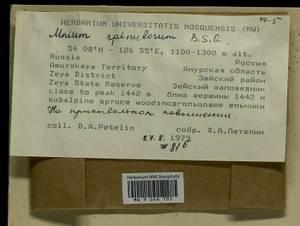 HERBARIUM UNIVERSITATIS MOSQUENSIS (MW)
Mnium spinulosum B.S.G.
54 08'N - 126 55'E, 1100-1300 m alt.
Russia Россия
Amurskaya Territory Амурская область
Zeya District Зейский район
Zeya State Reserve Зейский заповедник
close to peak 1442 m близ вершины 1442 м
subalpine spruce woods подгольцовые ельники
На приствольном повышении.
coll. D.A.Petelin собр. Д.А.Петелин
27.8.1979
#816
Herbarium MW, Bryophyta